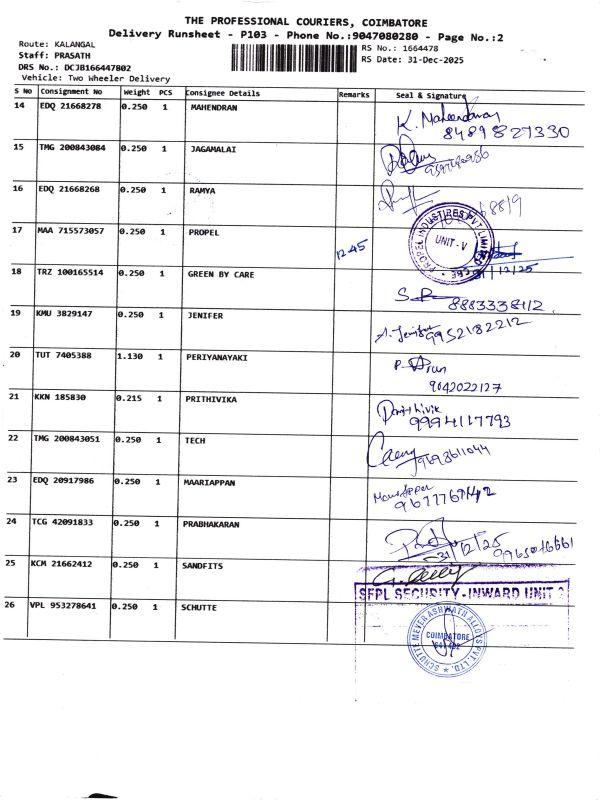 THE PROFESSIONAL COURIERS, COIMBATORE
Delivery Runsheet - P103 - Phone No.:9047080280 - Page No.:2
Route: KALANGAL
RS No.: 1664478
Staff: PRASATH
RS Date: 31-Dec-2025
DRS No.: DCJB166447802
Vehicle: Two Wheeler Delivery
S No Consignment No Weight PCS Consignee Details Remarks Seal & Signature
14 EDQ 21668278 0.250 1 MAHENDRAN K. Mahendran
8489827330
15 TMG 200843084 0.250 1 JAGAMALAI
16 EDQ 21668268 0.250 1 RAMYA
17 MAA 715573057 0.250 1 PROPEL 12.45
PROPEL INDUSTRIES PVT LIMITED
UNIT-V
CBE
31/12/25
18 TRZ 100165514 0.250 1 GREEN BY CARE
19 KMU 3829147 0.250 1 JENIFER
9952182212
20 TUT 7405388 1.130 1 PERIYANAYAKI
9042022127
21 KKN 185830 0.215 1 PRITHIVIKA Prithivik
9994117793
22 TMG 200843051 0.250 1 TECH
23 EDQ 20917986 0.250 1 MAARIAPPAN
24 TCG 42091833 0.250 1 PRABHAKARAN
31/12/25
25 KCM 21662412 0.250 1 SANDFITS
SFPL SECURITY-INWARD UNIT 2
26 VPL 953278641 0.250 1 SCHUTTE
SCHUTTE MEYER ASHWATH ALLOYS PVT. LTD.
COIMBATORE